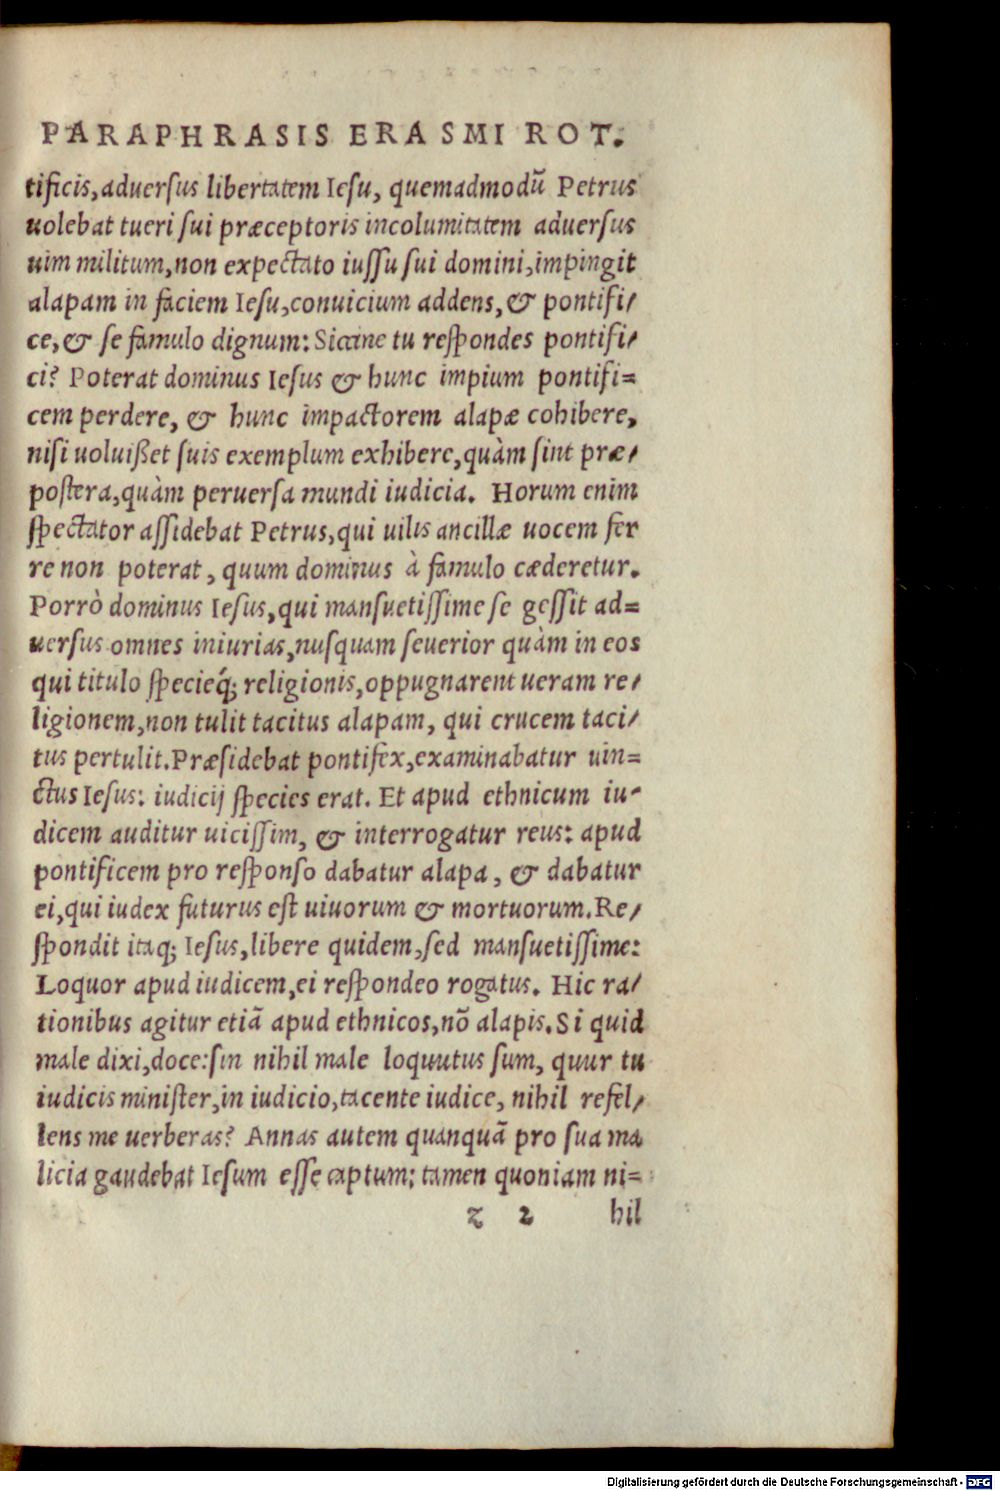 PARAPHRASIS ERASMI ROT.
tificis, aduersus libertatem Iesu, quemadmodũ Petrus
uolebat tueri sui præceptoris incolumitatem aduersus
uim militum, non expectato iussu sui domini, impingit
alapam in faciem Iesu, conuicium addens, & pontifi/
ce, & se famulo dignum: Siccine tu respondes pontifi/
ci? Poterat dominus Iesus & hunc impium pontifi=
cem perdere, & hunc impactorem alapæ cohibere,
nisi uoluißet suis exemplum exhibere, quàm sint præ/
postera, quàm peruersa mundi iudicia. Horum enim
spectator assidebat Petrus, qui uilis ancillæ uocem fer
re non poterat, quum dominus à famulo cæderetur.
Porrò dominus Iesus, qui mansuetissime se gessit ad=
uersus omnes iniurias, nusquam seuerior quàm in eos
qui titulo specieq́; religionis, oppugnarent ueram re/
ligionem, non tulit tacitus alapam, qui crucem taci/
tus pertulit. Præsidebat pontifex, examinabatur uin=
ctus Iesus: iudicij species erat. Et apud ethnicum iu-
dicem auditur uicissim, & interrogatur reus: apud
pontificem pro responso dabatur alapa, & dabatur
ei, qui iudex futurus est uiuorum & mortuorum. Re/
spondit itaq; Iesus, libere quidem, sed mansuetissime:
Loquor apud iudicem, ei respondeo rogatus. Hic ra/
tionibus agitur etiã apud ethnicos, nõ alapis. Si quid
male dixi, doce: sin nihil male loquutus sum, quur tu
iudicis minister, in iudicio, tacente iudice, nihil refel/
lens me uerberas? Annas autem quanquã pro sua ma
licia gaudebat Iesum esse captum; tamen quoniam ni=
z 2 hil
Digitalisierung gefördert durch die Deutsche Forschungsgemeinschaft - DFG